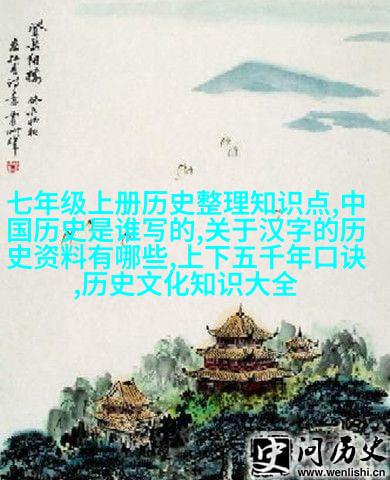 七年级上册历史整理知识点,中
国历史是谁写的,关于汉字的历
史资料有哪些,上下五千年口诀
,历史文化知识大全
史问历史
www.wenlishi.cn